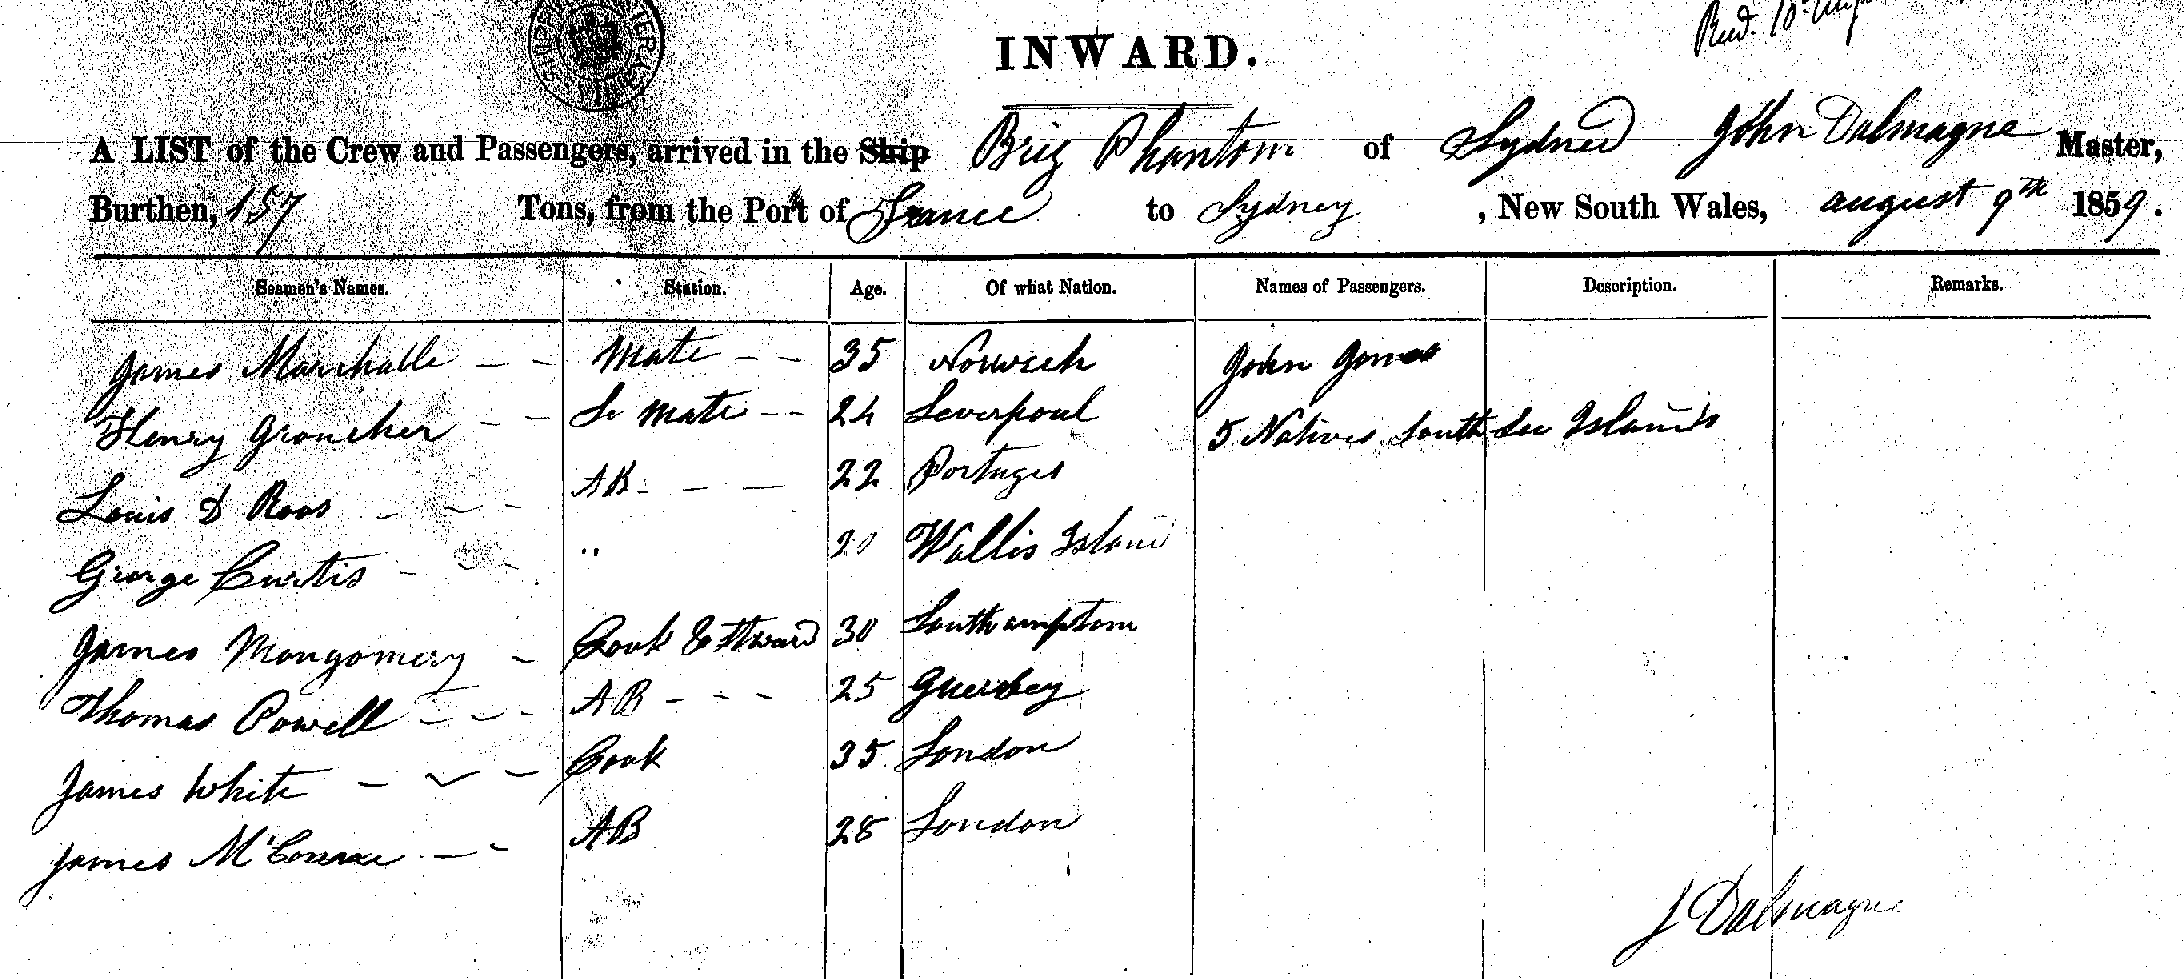 INWARD.
A LIST of the Crew and Passengers, arrived in the Ship Brig Phantom of Sydney John Dalmagne Master,
Burthen, 157 Tons, from the Port of France to Sydney, New South Wales, august 9th 1859.
Seamen's Names. Station. Age. Of what Nation. Names of Passengers. Description. Remarks.
James Marshalle - - Mate - - 35 Norwich John Jones
Henry Groucher - - Se Mate - - 24 Leverpoul 5 Natives South Sea Islands
Louis D Roos - - - AB - - - 22 Portuges
George Curtis - - - " 20 Wallis Island
James Mongomery - Cook & Steward 30 Southamptom
Thomas Powell - - - AB - - - 25 Guersey
James White - - - Cook 35 London
James - - AB 28 London
J Dalmagne